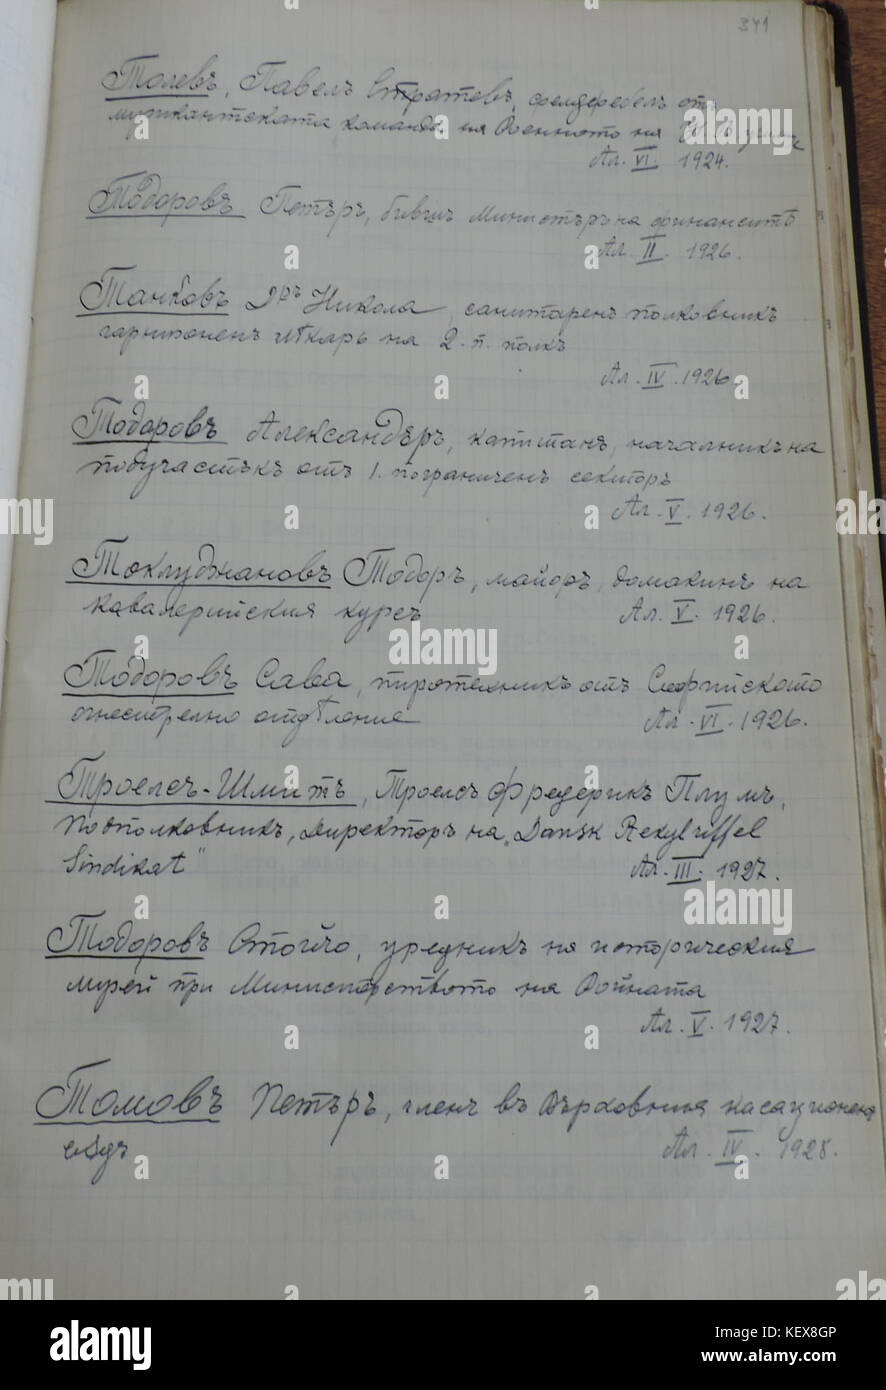 341
Толевъ, Павелъ Стратевъ, фелдфебелъ отъ
музикантската команда на Военното на
Ал. VI. 1924.
Тодоровъ Петъръ, бивши Министъръ на финанситѣ
Ал. II. 1926.
Танковъ Д-ръ Никола, санитаренъ полковникъ
гарнизоненъ лѣкарь на 2. п. полкъ
Ал. IV. 1926.
Тодоровъ Александъръ, капитанъ, началникъ на
подучастъкъ отъ 1. пограниченъ секторъ
Ал. V. 1926.
Токлуджановъ Тодоръ, майоръ, домакинъ на
Кавалерийския курсъ Ал. V. 1926.
Тодоровъ Сава, пиротехникъ отъ Софийското
огнестрелно отдѣление Ал. VI. 1926.
Троелсъ-Шмитъ, Троелсъ Фредерикъ Плумъ,
Подполковникъ, Директоръ на „Dansk Rekylriffel
Sindikat" Ал. III. 1927.
Тодоровъ Стойчо, уредникъ на историческия
музей при Министерството на Войната
Ал. V. 1927.
Томовъ Петъръ, членъ въ Върховния касационенъ
сѫдъ Ал. IV. 1928.
alamy
www.alamy.com
KEX8GP